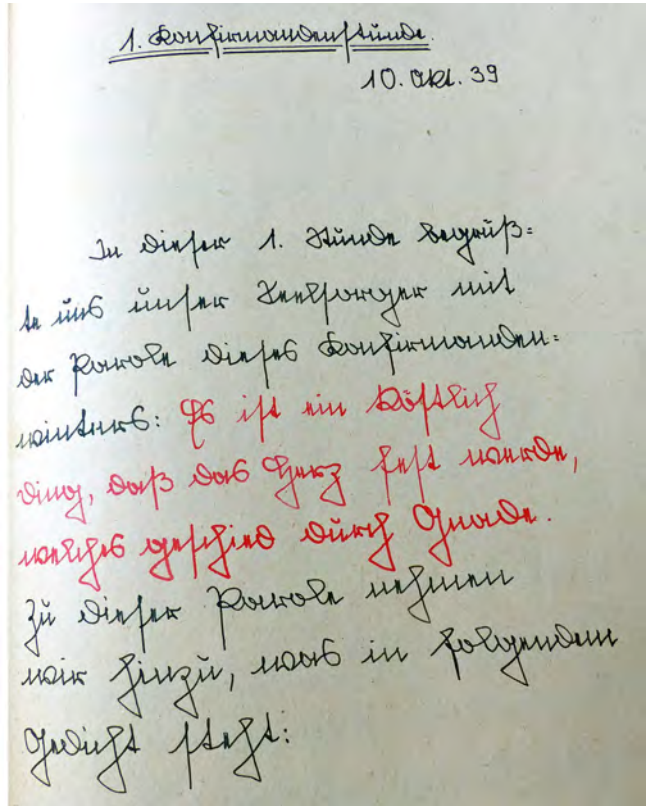 1. Konfirmandenstunde.
10. Okt. 39
In dieser 1. Stunde begrüß=
te uns unser Seelsorger mit
der Parole dieses Konfirmanden=
winters: Es ist ein köstlich
Ding, daß das Herz fest werde,
welches geschied durch Gnade.
Zu dieser Parole nehmen
wir hinzu, was in folgendem
Gedicht steht: